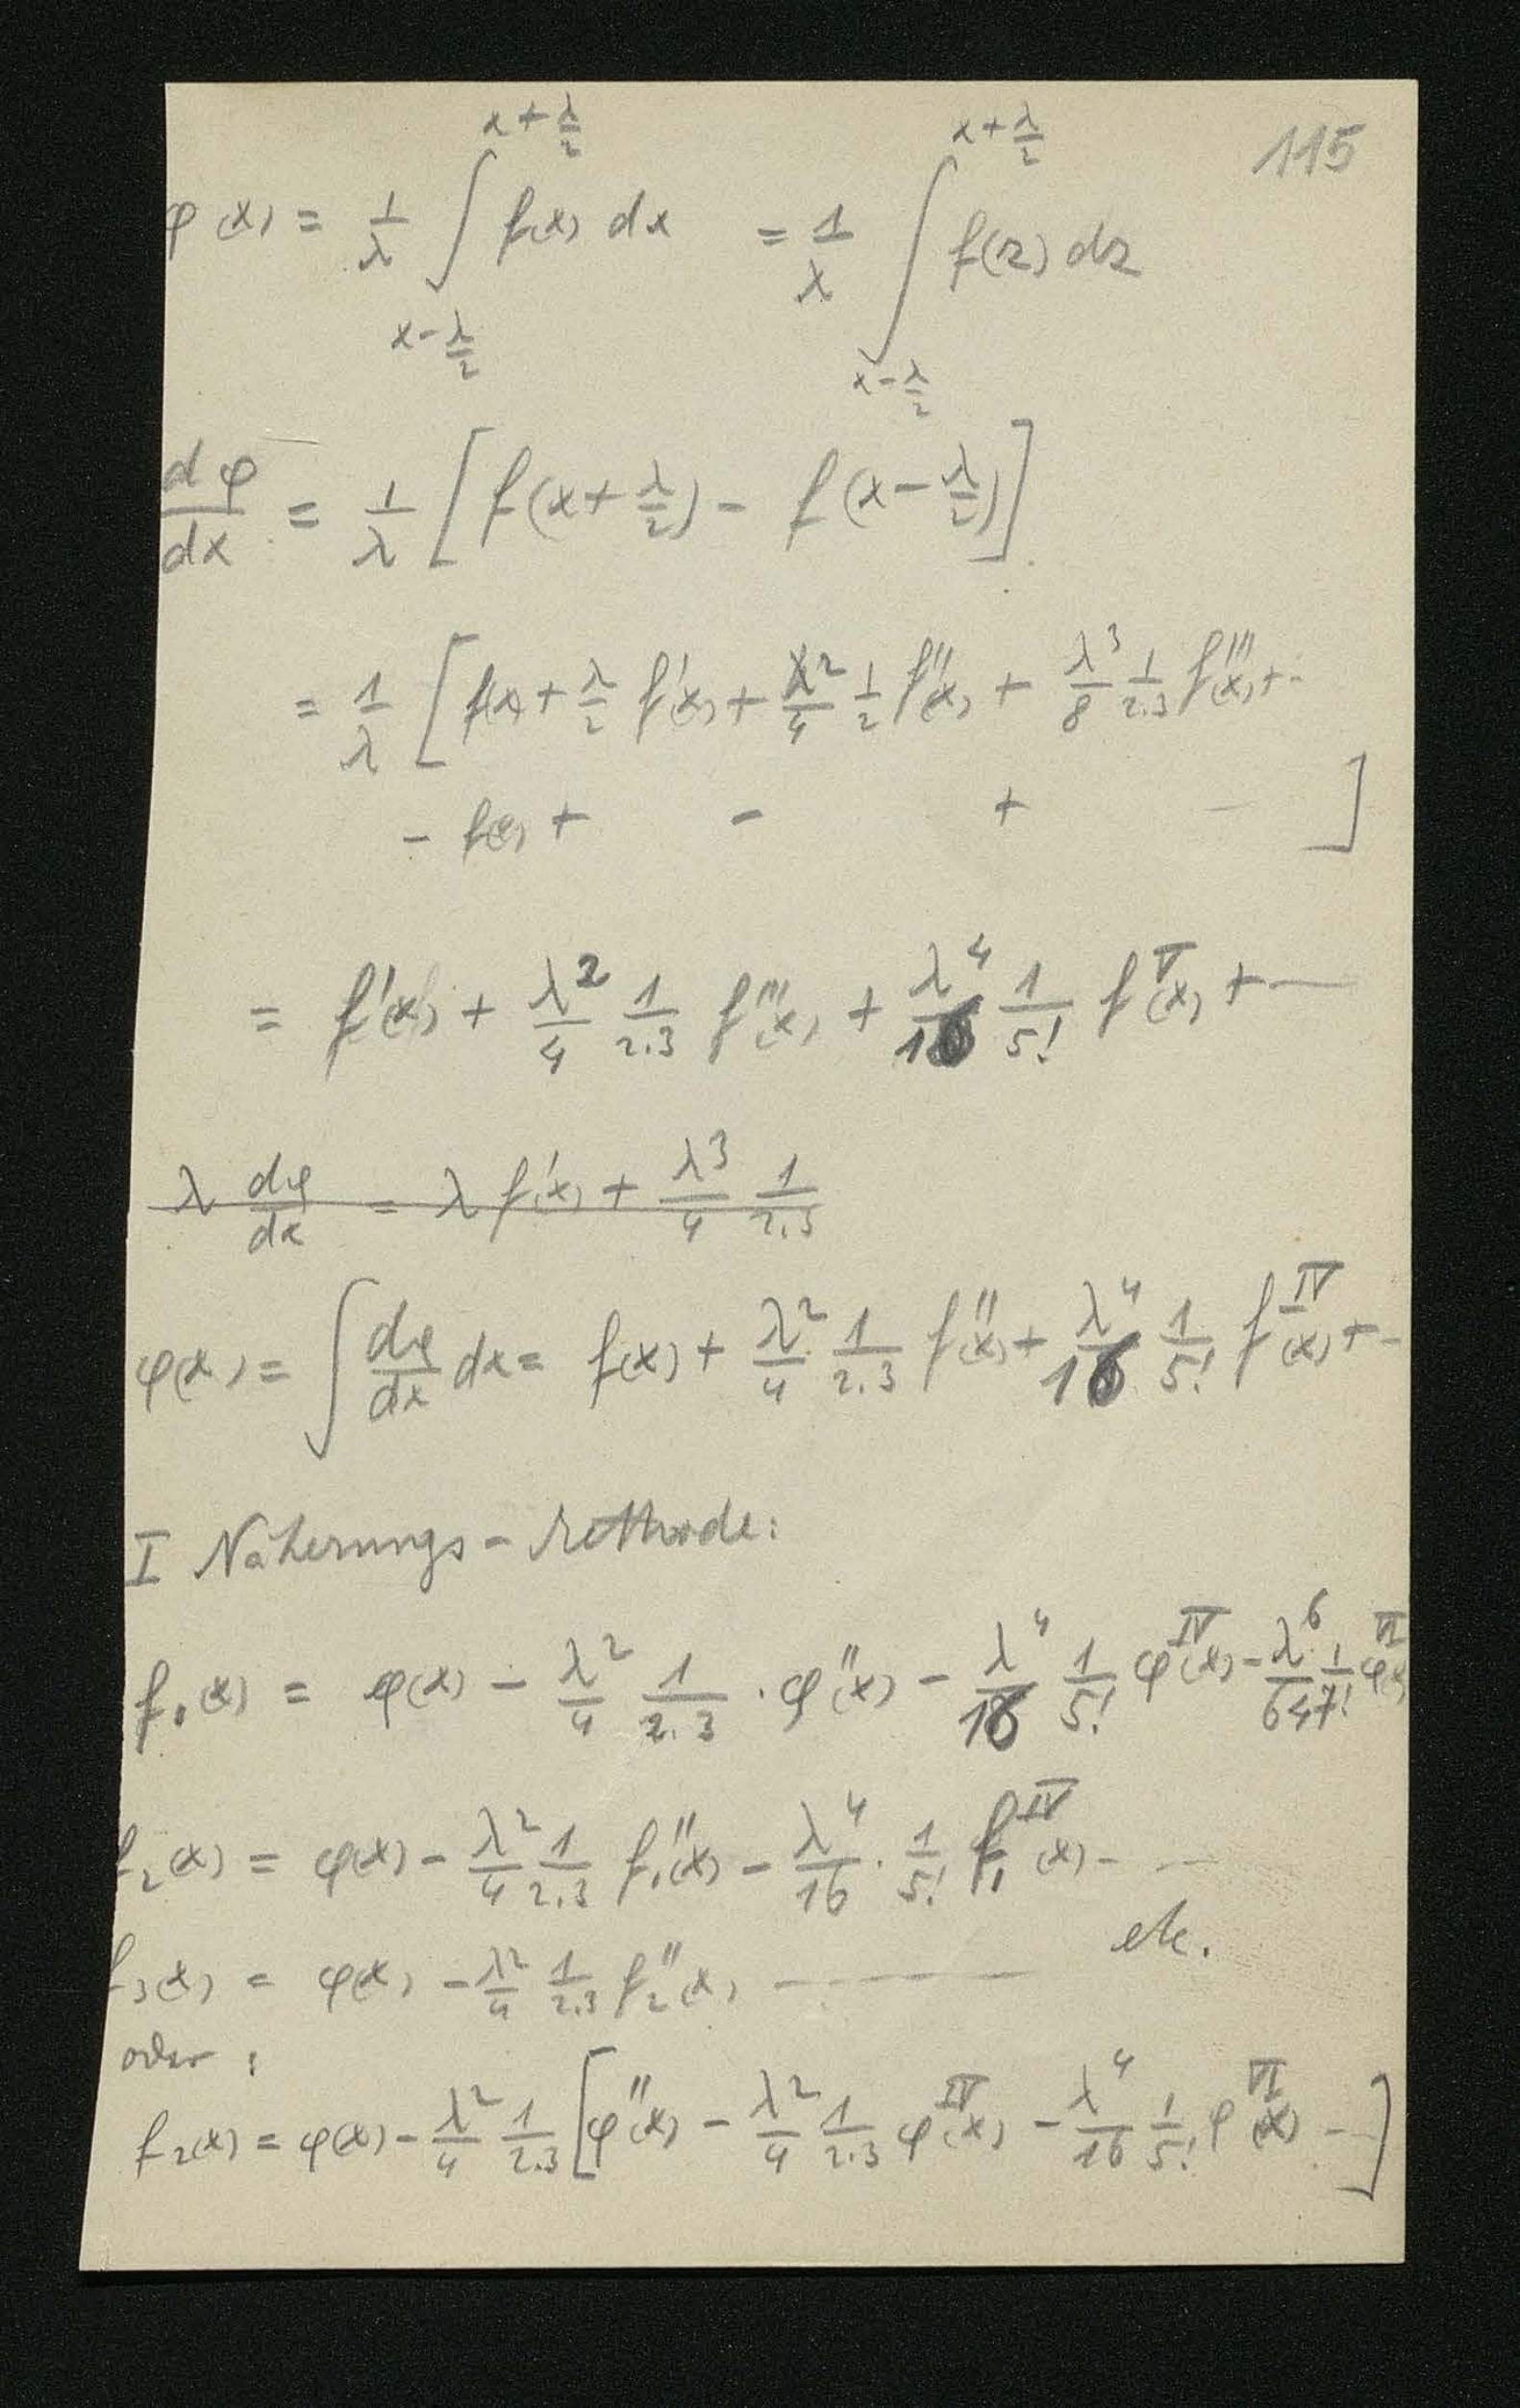 115
φ(x) = \frac{1}{λ} \int_{x-\frac{λ}{2}}^{x+\frac{λ}{2}} f(x) dx = \frac{1}{λ} \int_{x-\frac{λ}{2}}^{x+\frac{λ}{2}} f(z) dz
\frac{dφ}{dx} = \frac{1}{λ} [ f(x+\frac{λ}{2}) - f(x-\frac{λ}{2}) ]
= \frac{1}{λ} [ f(x) + \frac{λ}{2} f'(x) + \frac{λ^2}{4} \frac{1}{2} f''(x) + \frac{λ^3}{8} \frac{1}{2.3} f'''(x) + ..
- f(x) + - + - ]
= f'(x) + \frac{λ^2}{4} \frac{1}{2.3} f'''(x) + \frac{λ^4}{16} \frac{1}{5!} f^{V}(x) + —
λ \frac{dφ}{dx} = λ f'(x) + \frac{λ^3}{4} \frac{1}{2.3}
φ(x) = \int \frac{dφ}{dx} dx = f(x) + \frac{λ^2}{4} \frac{1}{2.3} f''(x) + \frac{λ^4}{16} \frac{1}{5!} f^{IV}(x) + -
I Näherungs-Methode:
f_1(x) = φ(x) - \frac{λ^2}{4} \frac{1}{2.3} . φ''(x) - \frac{λ^4}{16} \frac{1}{5!} φ^{IV}(x) - \frac{λ^6}{64} \frac{1}{7!} φ^{VI}(x)
f_2(x) = φ(x) - \frac{λ^2}{4} \frac{1}{2.3} f_1''(x) - \frac{λ^4}{16} . \frac{1}{5!} f_1^{IV}(x) - ...
etc.
f_3(x) = φ(x) - \frac{λ^2}{4} \frac{1}{2.3} f_2''(x) ————
oder :
f_2(x) = φ(x) - \frac{λ^2}{4} \frac{1}{2.3} [ φ''(x) - \frac{λ^2}{4} \frac{1}{2.3} φ^{IV}(x) - \frac{λ^4}{16} \frac{1}{5!} φ^{VI}(x) - - ]